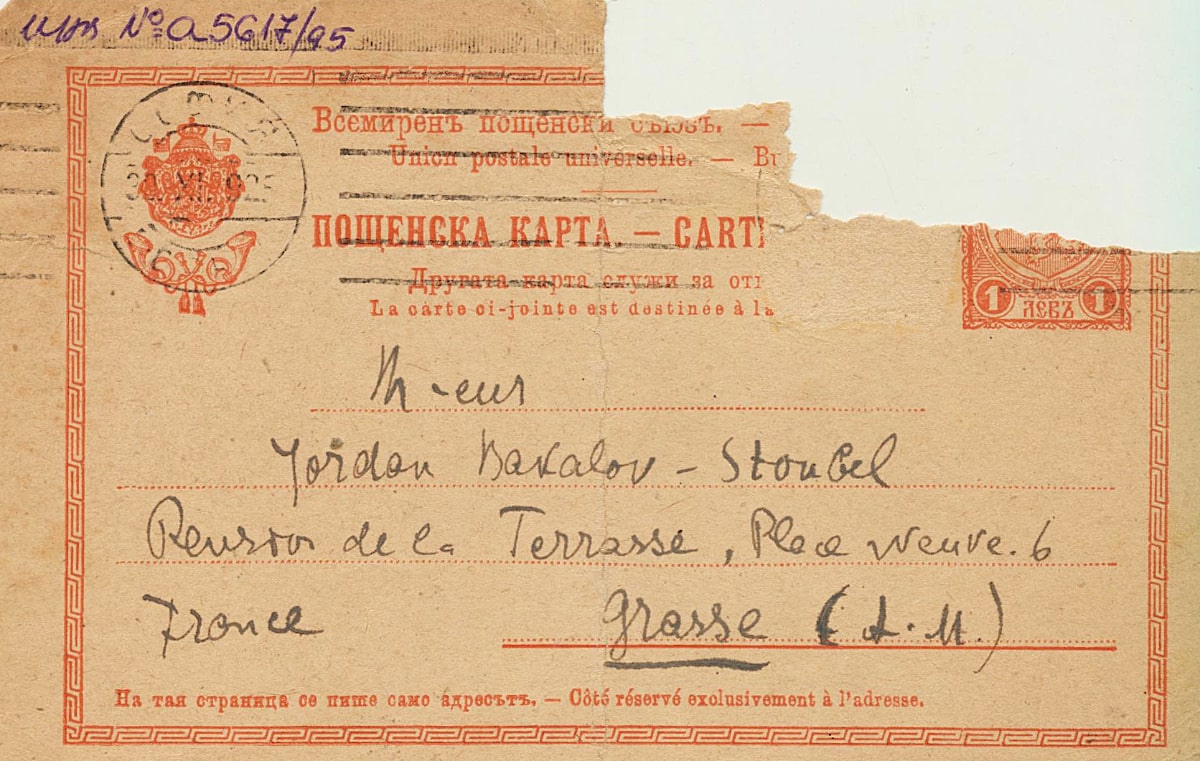 инв №а5617/95
СОФИЯ
30.XI.925
Всемиренъ пощенски съюзъ. —
Union postale universelle. — Bu
ПОЩЕНСКА КАРТА. — CARTE
Другата карта служи за отг
La carte ci-jointe est destinée à la
1 ЛЕВЪ 1
M-eur
Yordan Bakalov - Stoubel
Pension de la Terrasse, Place neuve. 6
France Grasse (A.M.)
На тая страница се пише само адресътъ. — Côté réservé exclusivement à l'adresse.